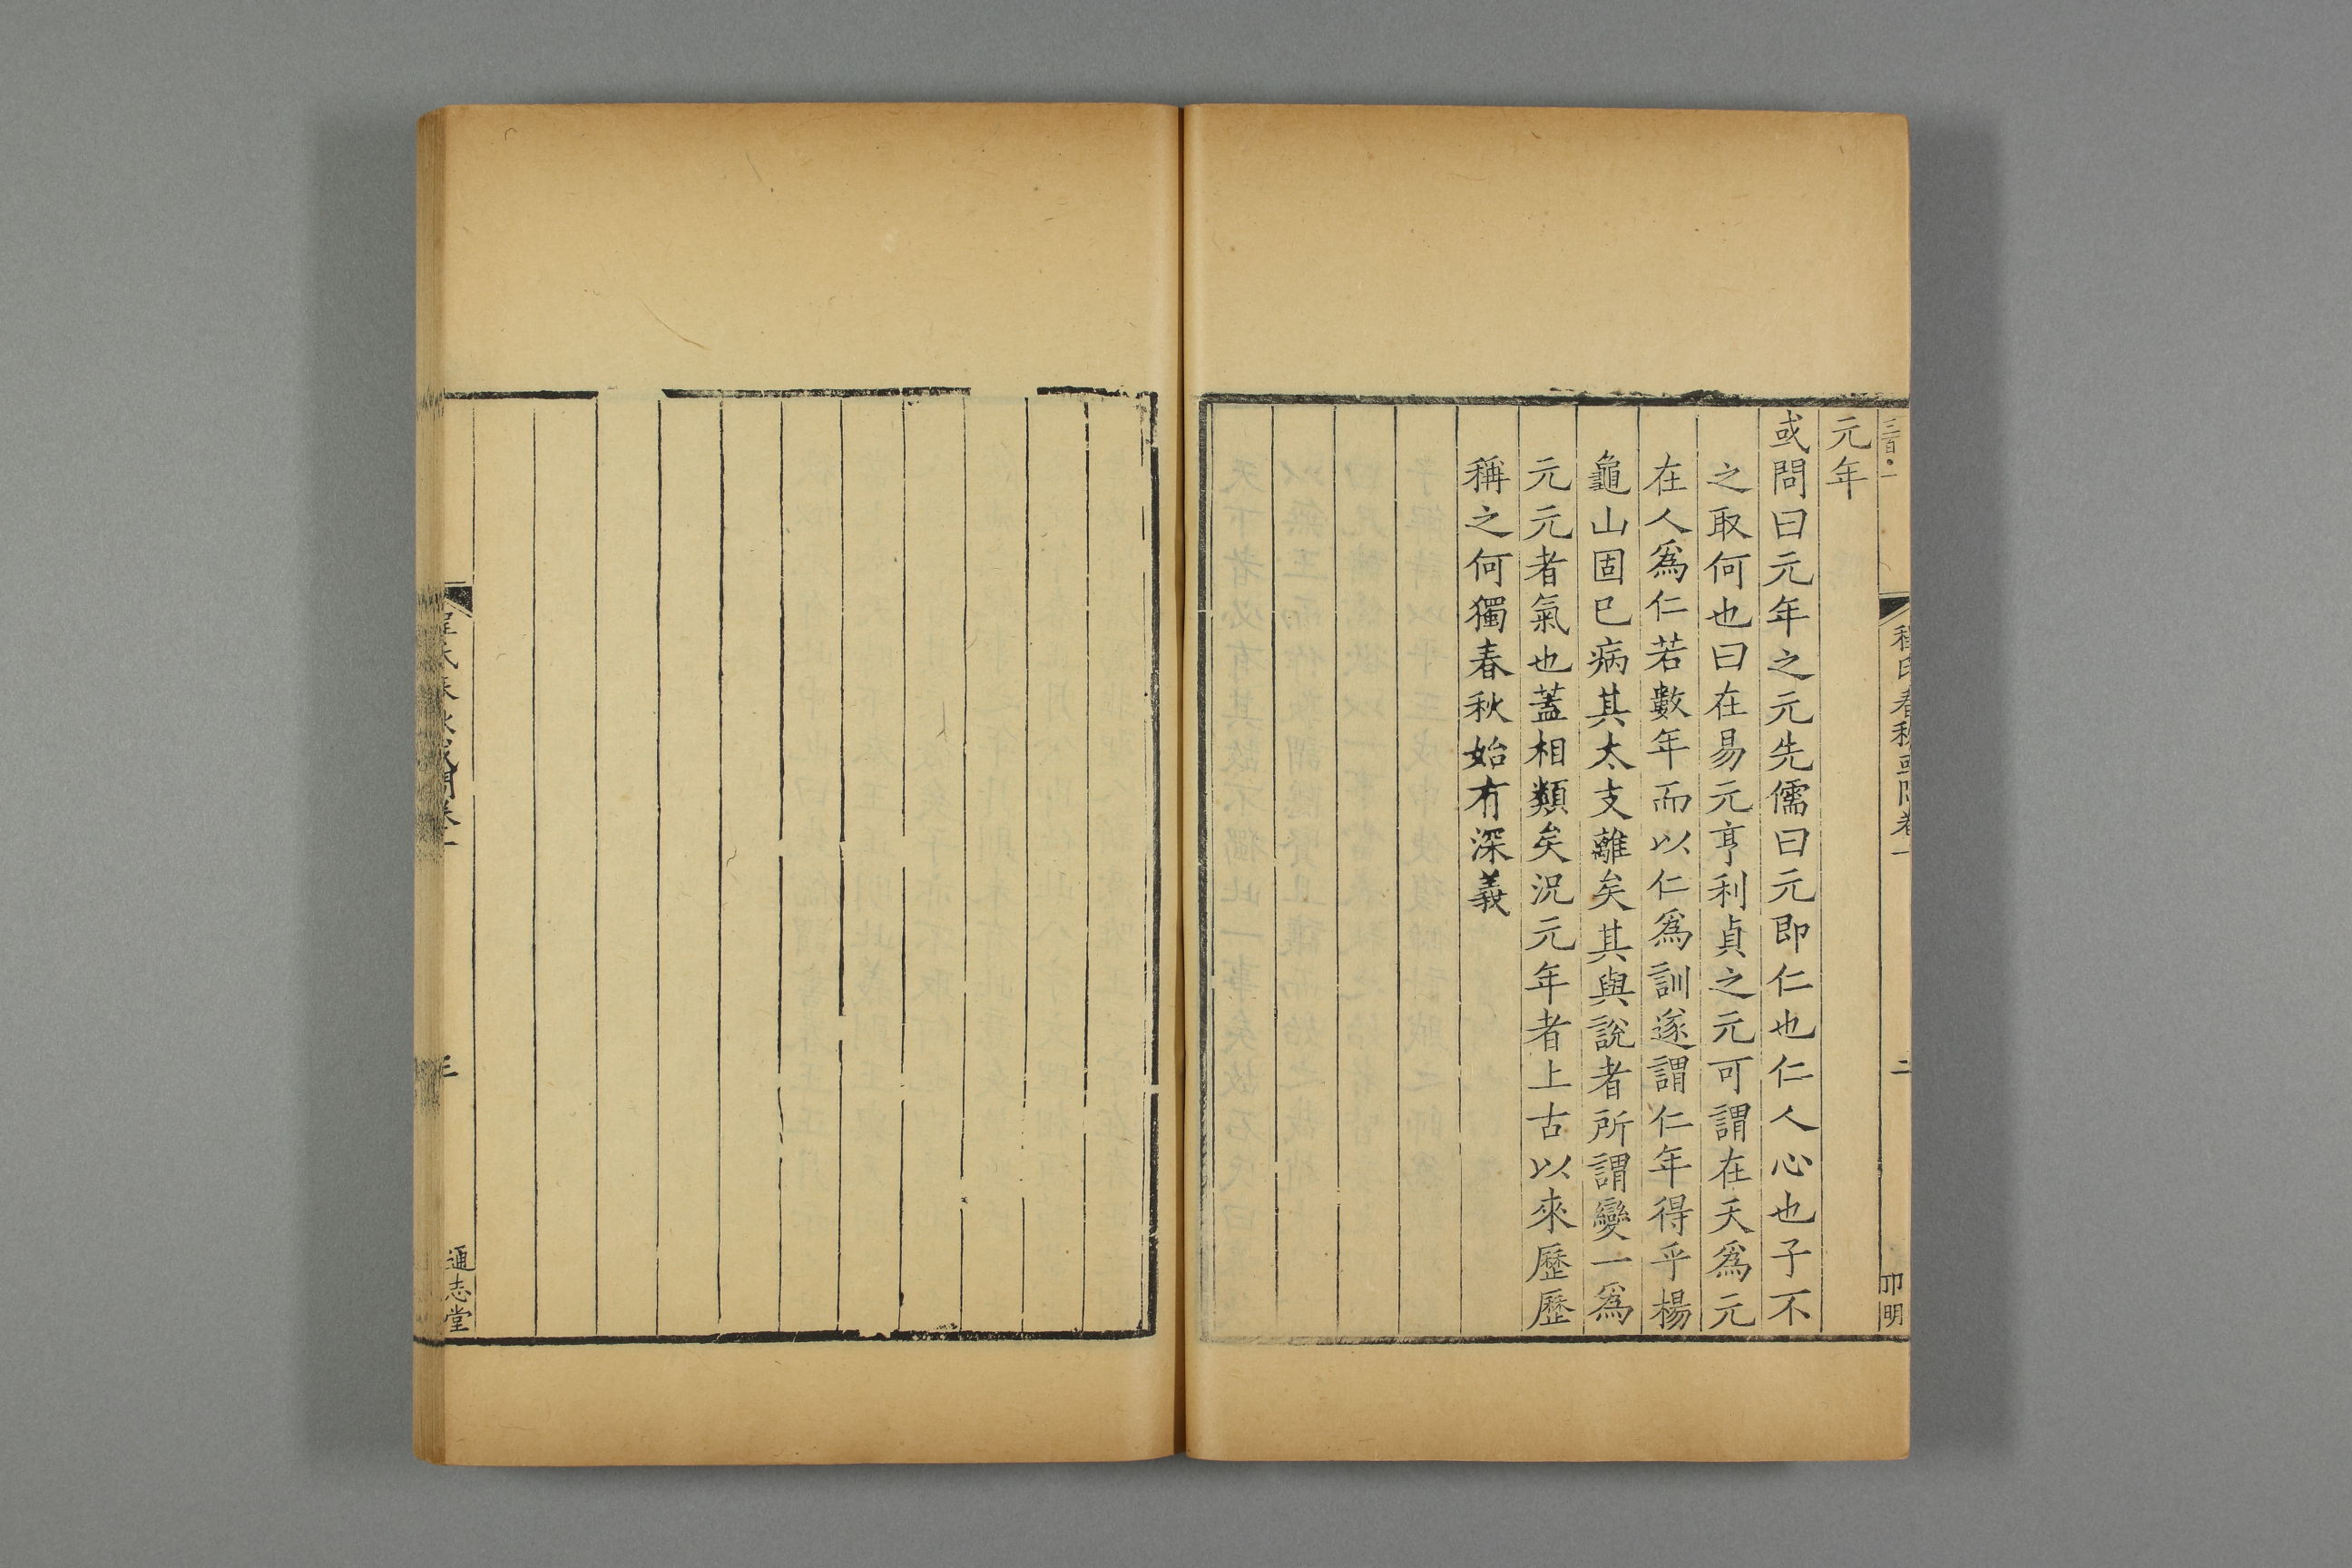 三百·一
程氏春秋或問卷一
二
卬明
元年
或問曰元年之元先儒曰元即仁也仁人心也子不
之取何也曰在易元亨利貞之元可謂在天爲元
在人爲仁若數年而以仁爲訓遂謂仁年得乎楊
龜山固已病其太支離矣其與說者所謂變一爲
元元者氣也蓋相類矣況元年者上古以來歷歷
稱之何獨春秋始有深義
程氏春秋或問卷一
三
通志堂